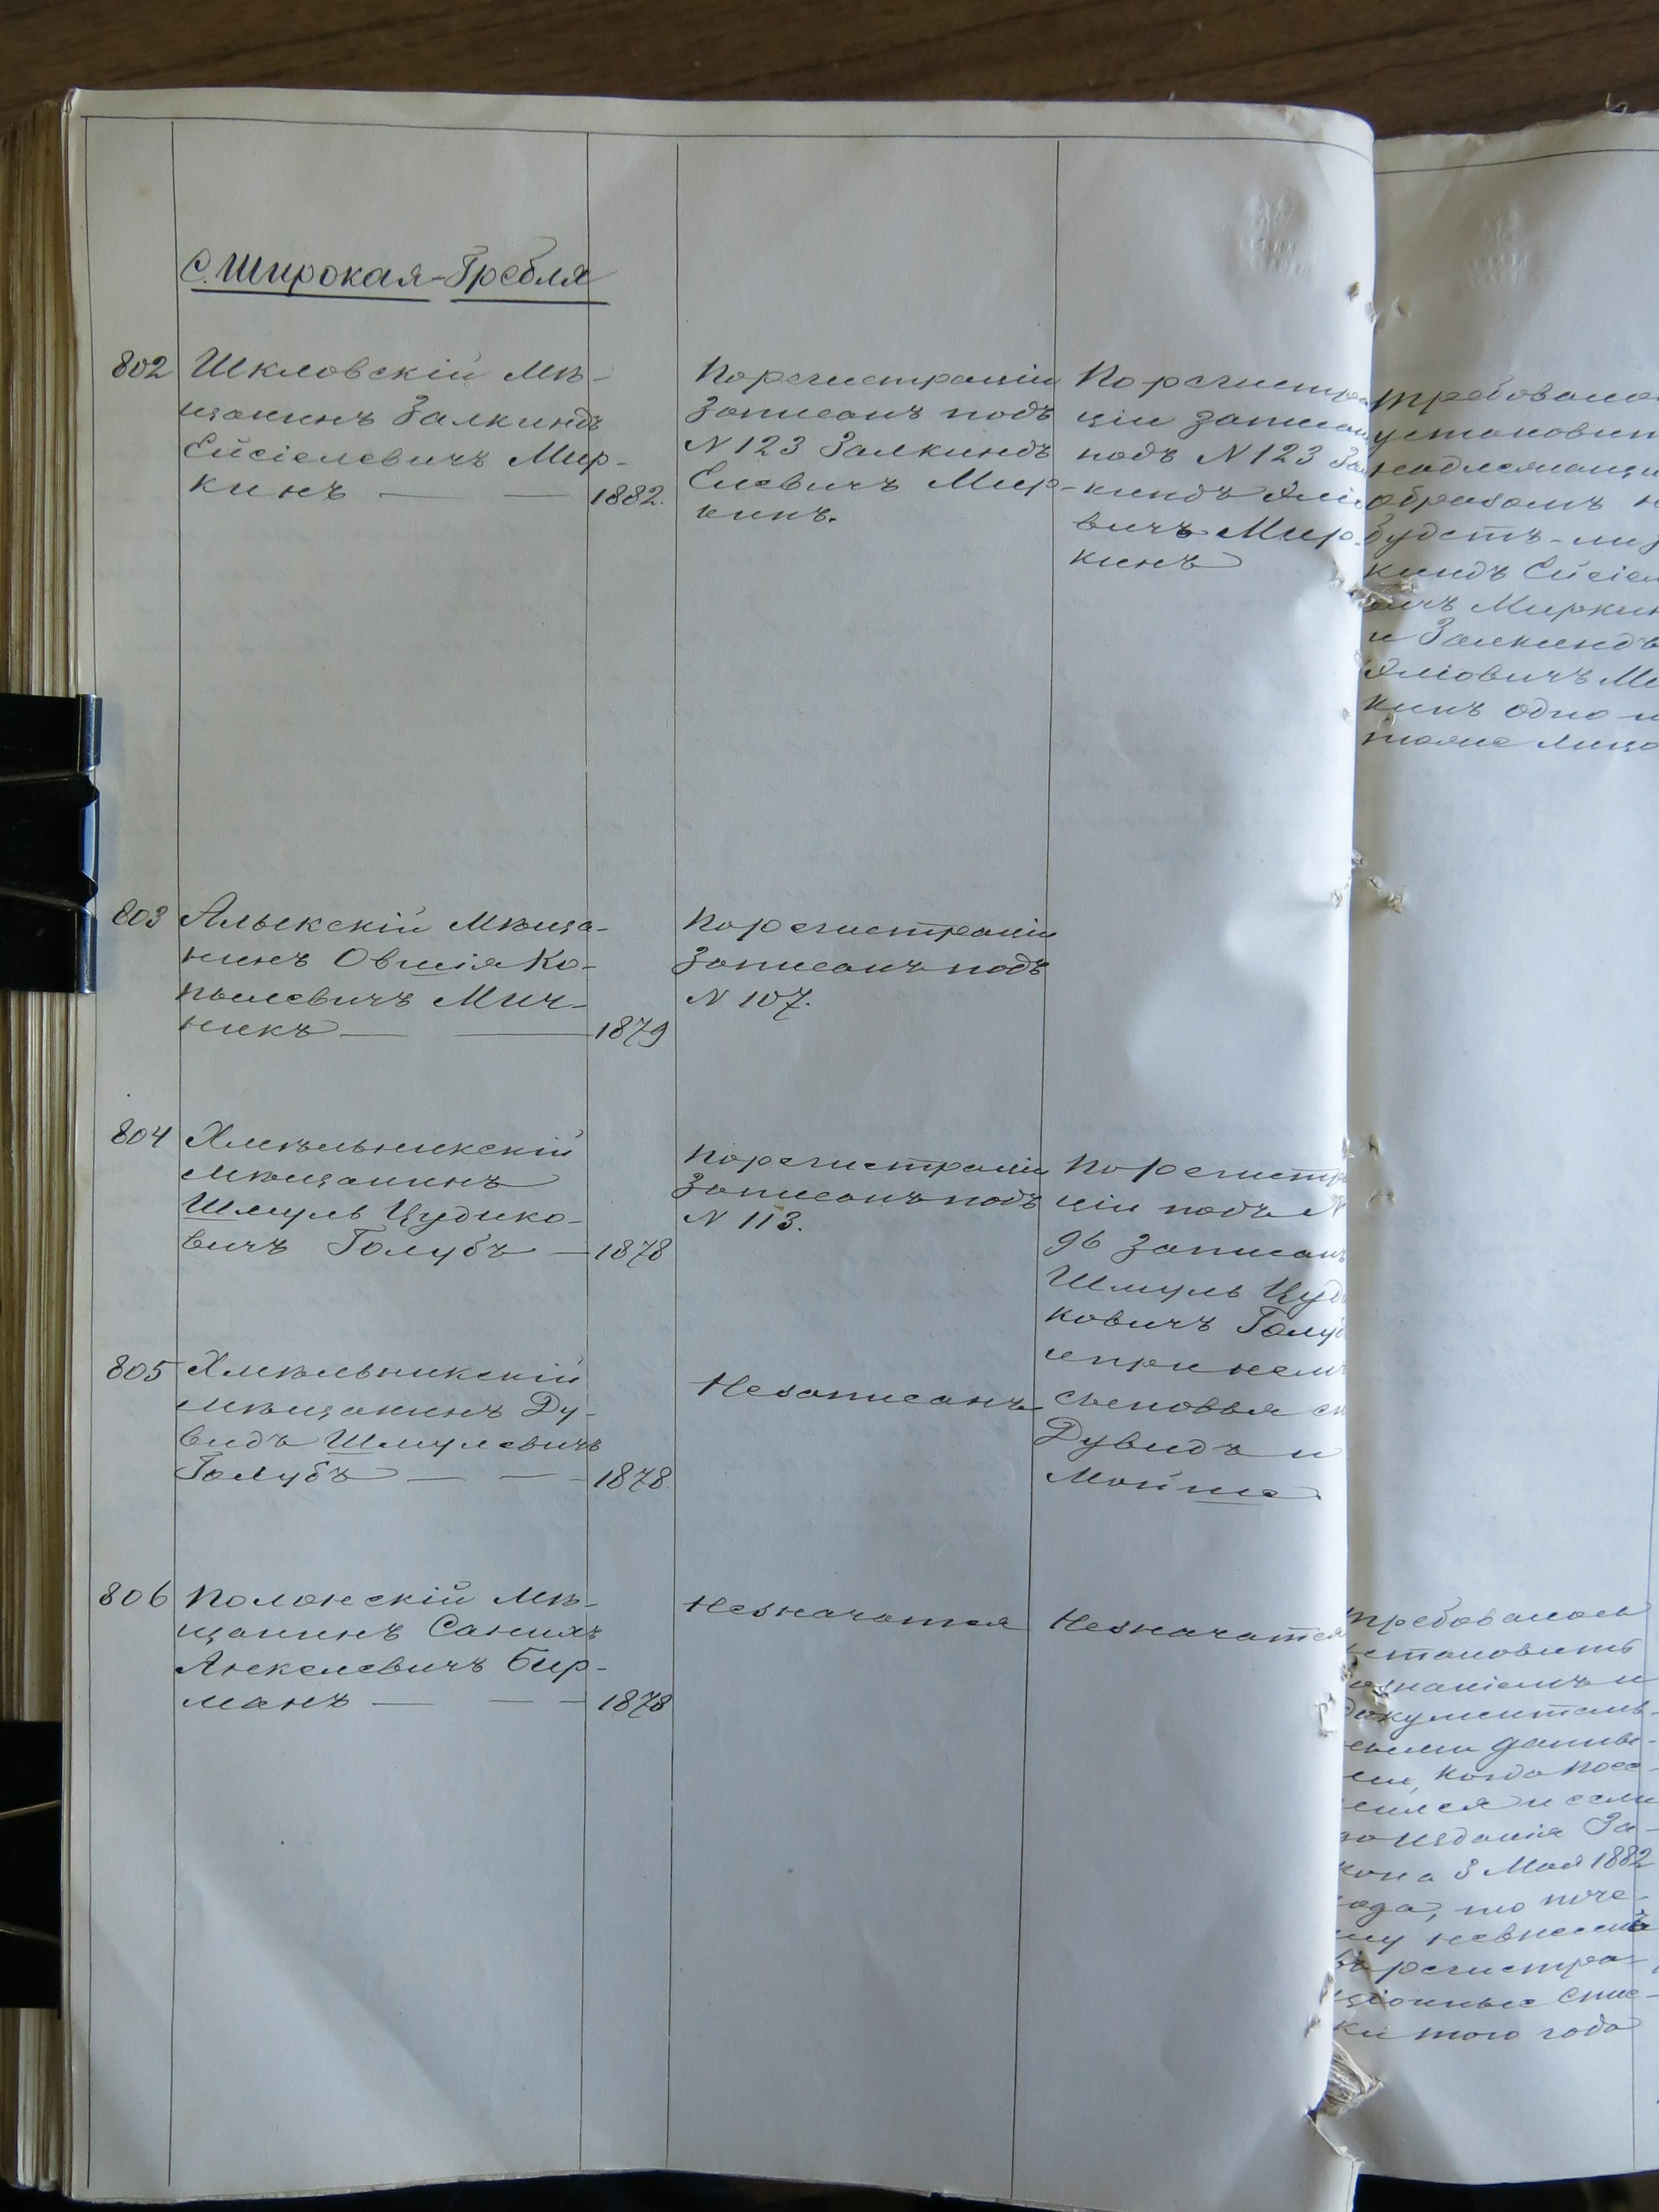 С. Широкая-Гребля
802
Шкловскій мѣ-
щанинъ Залкиндъ
Ейсіелевичъ Мир-
кинъ — — 1882.
По регистраціи
записанъ подъ
N 123 Залкиндъ
Елевичъ Мир-
кинъ.
По регистра
ціи записан
подъ N 123 Зал
киндъ Эліо
вичъ Мир-
кинъ
требовало
установит
надлежащи
образомъ н
будетъ-ли З
киндъ Ейсіел
вичъ Миркин
и Залкиндъ
Эліовичъ Ми
кинъ одно и
тоже лицо
803
Алыкскій мѣща-
нинъ Овшія Ко-
пылевичъ Мич-
никъ — — 1879
По регистраціи
записанъ подъ
N 107.
804
Хмѣльникскій
мѣщанинъ
Шмуль Цудико-
вичъ Голубъ — 1878
По регистраціи
записанъ подъ
N 113.
По регистр
ціи подъ N
96 записанъ
Шмуль Цуди
ковичъ Голуб
и при немъ
сыновья ег
Дувидъ и
Мойше.
805
Хмѣльникскій
мѣщанинъ Ду-
видъ Шмулевичъ
Голубъ — — 1878.
Незаписанъ
806
Полонскій мѣ-
щанинъ Саниль
Анкелевичъ Бир-
манъ — — 1878
Незначатся
Незначатся
требовалось
установить
дознаніемъ и
документаль-
ными данны-
ми, когда посе-
лился и если
до изданія За-
кона 3 Мая 1882
года, то поче-
му невнесенъ
въ регистра-
ціонные спис-
ки того года